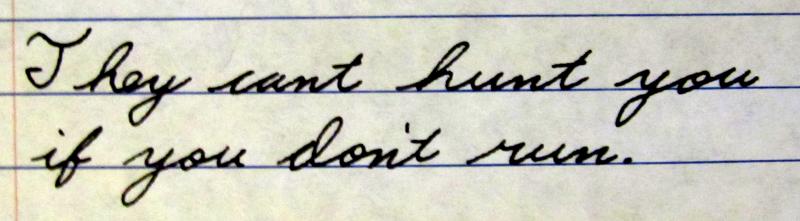 They cant hunt you
if you don't run.